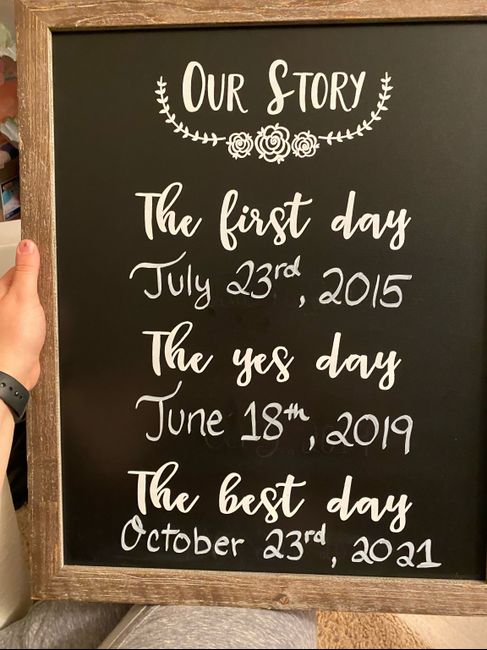 Our Story
The first day
July 23rd, 2015
The yes day
June 18th, 2019
The best day
October 23rd, 2021